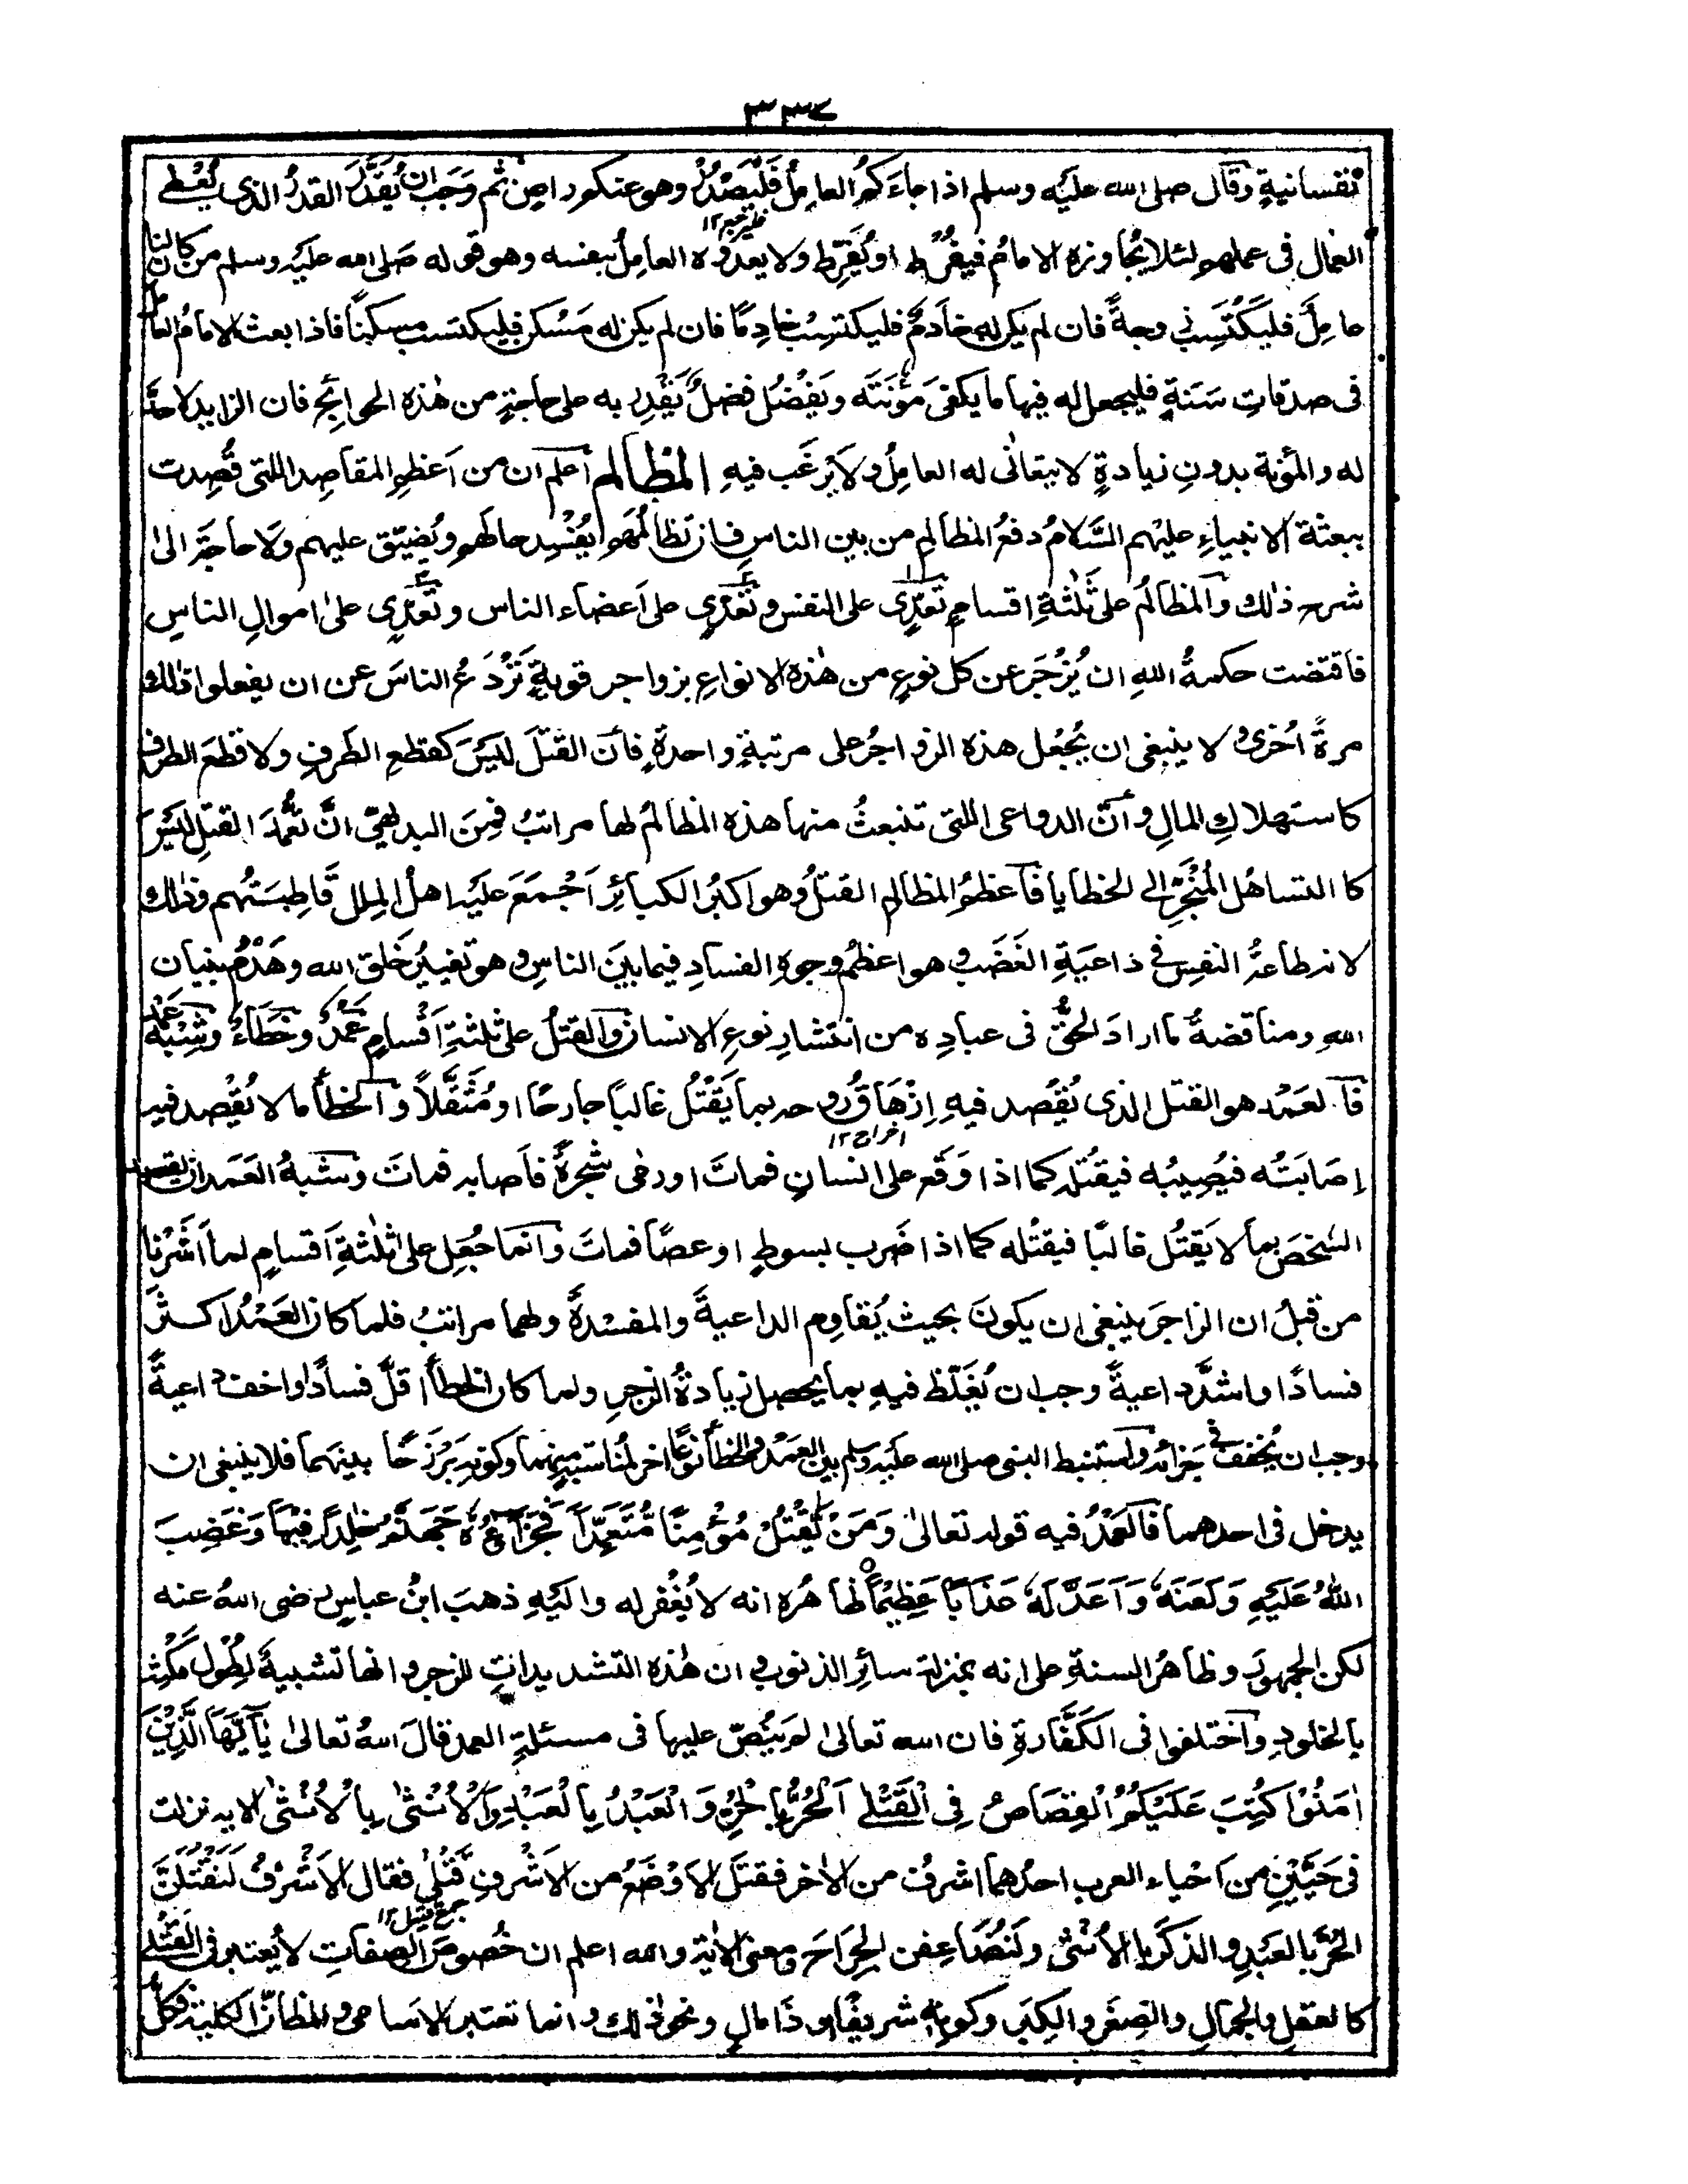 ٣٣٧
نفسانيةٍ وقال صلى الله عليه وسلم اذا جاءَكُم العامِلُ فَلْيَصْدُرْ وهو عنكم راضٍ ثم وَجَب ان يُقدَّر القدرُ الذى يُعْطى
العمال فى عملهم لئلا يُجاوزه الامامُ فيُفْرِط او يُفَرِّط ولا يعدوه العامِلُ بنفسه وهو قوله صَلى الله عليه وسلم من كان لنا
عامِلًا فليَكْتَسِبْ زوجةً فان لم يكن له خادمٌ فليكتسِبْ خادِمًا فان لم يكن له مَسْكن فليكتسب مسكنًا فاذا بعث الامامُ العامل
فى صدقاتِ سَنَةٍ فليجعل له فيها ما يكفى مَؤُنَتَه ويَفْضُل فضلٌ يَقْدِر به على حاجةٍ من هٰذه الحوائج فان الزايد لا حدَّ
له والمؤنة بدونِ زيادةٍ لا يتعانى له العامِلُ ولا يَرْغَب فيهِ المظالم اعلم ان من اَعْظمِ المقاصِد اللتى قُصِدت
ببعثة الانبياءِ عليهم السَّلامُ دفعُ المظالمِ من بين الناسِ فان تظالُمَهم يُفْسِد حالهم ويُضيّق عليهم ولا حاجةَ الىٰ
شرح ذٰلك والمظالمُ على ثَلٰثةِ اقسامٍ تَعدّى على النفس وتَعدّى على اَعضاء الناس وتَعدّى علىٰ اموالِ الناسِ
فاقتضت حكمةُ اللهِ ان يُزْجَر عن كل نوعٍ من هٰذه الانواعِ بزواجر قويةٍ تَرْدَعُ الناسَ عن ان يفعلوا ذٰلك
مرةً اُخرىٰ ولا ينبغى ان يُجْعل هذه الزواجرُ على مرتبةٍ واحدةٍ فان القتلَ ليسَ كقطعِ الطَرفِ ولا قطعَ الطرف
كاستهلاكِ المالِ وأنّ الدواعى اللتى تنبعثُ منها هذه المظالمُ لها مراتبُ فمِنَ البديهيّ انّ تعمُّدَ القتلِ ليسَ
كالتساهُل المُنْجَرِّ الى الخطايا فاعظمُ المظالمِ القتلُ وهو اكبرُ الكبائرِ اَجْمَعَ عليه اهلُ المِلل قَاطِبَتُهم وذلك
لانه طاعةُ النفسِ فى داعيَةِ الغَضَب وهو اعظمُ وجوهِ الفسادِ فيما بينَ الناسِ وهو تغييرُ خَلق الله وهَدْمُ بنيان
اللهِ ومناقضةُ ما ارادَ الحقُّ فى عبادِه من انتشارِ نوعِ الانسان والقتلُ على ثلثةِ اَقْسامٍ عَمْدٌ وخَطاءٌ وشِبْهُ عمد
فالعَمْد هو القتل الذى يُقْصد فيهِ اِزْهَاقُ روحه بما يَقْتُلُ غالبًا جارحًا او مُثَقَّلاً والخطأُ ما لا يُقْصد فيه
اِصَابَتُه فيُصِيبُه فيقتُله كما اذا وَقع على انسانٍ فماتَ او رمٰى شجرةً فاصابه فماتَ وشبهُ العَمد ان يقصد
الشخصَ بما لا يَقتُل غالبًا فيقتُله كما اذا ضرب بسوطٍ او عصًا فمات وانما جُعِل علىٰ ثلٰثةِ اَقسامٍ لما اَشَرْنا
من قبلُ ان الزاجرَ ينبغى ان يكونَ بحيث يُقاوِم الداعيةَ والمفسدةَ ولهما مراتبُ فلما كان العَمْدُ اكثرَ
فسادًا واشدَّ داعيةً وجب ان يُغَلّظ فيهِ بما يحصل زيادةُ الزجرِ ولما كان الخطأُ اقلَّ فسادًا واخف داعيةً
وجب ان يُخفف فى جزائه واستنبط النبى صلى الله عليه وسلم بين العمْد والخطأ نوعًا اٰخر لمُناسَبة بينهما وكونِه بَرْزَخًا بينهما فلا ينبغى ان
يدخل فى احدهما فالعمْدُ فيه قوله تعالىٰ وَمَنْ يَّقْتُلْ مُؤْمِنًا مُّتَعَمِّدًا فَجَزَآؤُهٗ جَهَنَّمُ خٰلِدًا فِيْهَا وَغَضِبَ
اللّٰهُ عَلَيْهِ وَلَعَنَهٗ وَاَعَدَّ لَهٗ عَذَابًا عَظِيْمًا ظاهُره انه لا يُغْفر له واليْهِ ذهبَ ابنُ عباسٍ رضى اللهُ عنه
لكن الجمهورَ وظاهرُ السنةِ على انه بمنزلة سائرِ الذنوب وان هٰذه التشديداتِ للزجر وانها تشبيهٌ لطُول مَكْثه
بالخلودِ واختلفوا فى الكَفَّارةِ فان الله تعالىٰ لم ينُصّ عليها فى مسئلةِ العمد قالَ اللهُ تعالىٰ يٰاَيُّهَا الَّذِيْنَ
اٰمَنُوْا كُتِبَ عَلَيْكُمُ الْقِصَاصُ فِى الْقَتْلٰى اَلْحُرُّ بِالْحُرِّ وَالْعَبْدُ بِالْعَبْدِ وَالْاُنْثٰى بِالْاُنْثٰى الاٰيه نزلت
فى حَيَّيْنِ من اَحْياء العرب احدُهما اشرفُ من الاٰخر فقتَل الاَوْضَعُ من الاَشْرفِ قَتْلٰى فقال الاَشْرفُ لَنَقْتُلَنَّ
الحُرَّ بالعَبْدِ والذكرَ بالاُنثىٰ ولَنُضَاعِفن الجِرَاحَ ومعنى الاٰيةِ والله اعلم ان خُصوصَ الصفاتِ لا يُعتبر فى القَتْلى
كالعقلِ والجمالِ والصِغَرِ والكِبَرِ وكونِه شريفًا او ذَا مالٍ ونحوِ ذٰلك وانما تعتبر الاسامى والمظانّ الكلية فكلُّ